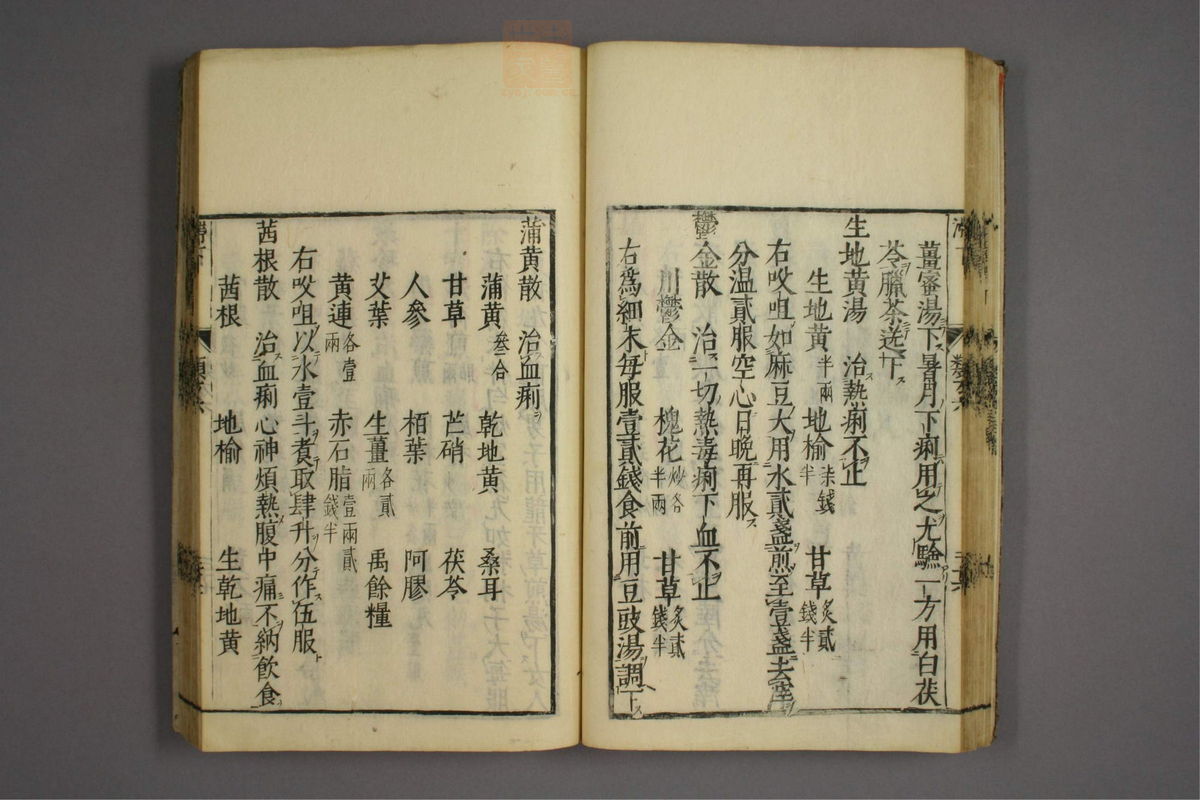 薑蜜湯下暑月下痢用之尤驗一方用白茯
苓臘茶送下
生地黄湯　治熱痢不止
生地黄半兩　地榆柒錢半　甘草炙貳錢半
右㕮咀如麻豆大用水貳盞煎至壹盞去滓
分温貳服空心日晚再服
鬱金散　治一切熱毒痢下血不止
川鬱金　槐花炒各半兩　甘草炙貳錢半
右爲細末每服壹貳錢食前用豆豉湯調下
蒲黄散　治血痢
蒲黄叁合　乾地黄　桑耳
甘草　芒硝　茯苓
人參　栢葉　阿膠
艾葉　生薑各貳兩　禹餘糧
黄連各壹兩　赤石脂壹兩貳錢半
右㕮咀以水壹斗煮取肆升分作伍服
茜根散　治血痢心神煩熱腹中痛不納飲食
茜根　地榆　生乾地黄